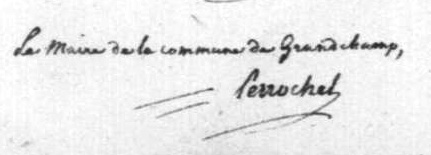 Le Maire de la commune de Grandchamp,
Perrochel